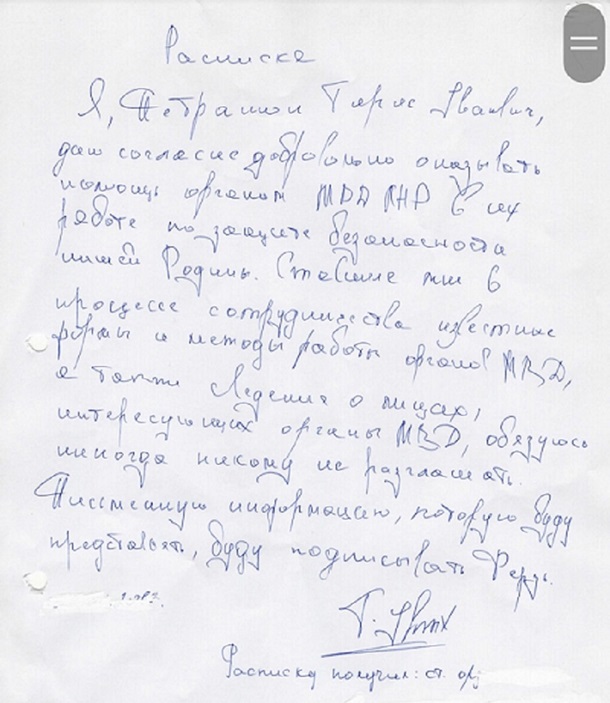 Расписка
Я, Петрашок Тарас Іванович,
даю согласие добровольно оказывать
помощь органам МВД ЛНР в их
работе по защите безопасности
нашей Родины. Ставшие мне в
процессе сотрудничества известные
формы и методы работы органов МВД,
а также сведения о лицах,
интересующих органы МВД, обязуюсь
никогда никому не разглашать.
Письменную информацию, которую буду
представлять, буду подписывать
Расписку получил: ст. о/у